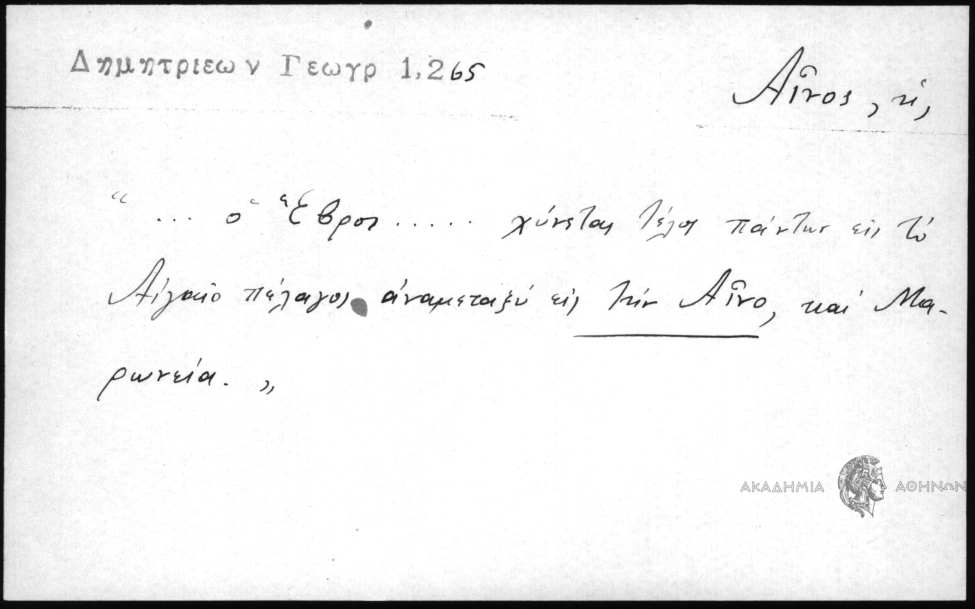 Δημητριεων Γεωγρ 1,265
Αἶνος, ἡ,
“ ... ὁ Ἕβρος ..... χύνεται τέλος πάντων εἰς τὸ
Αἰγαῖο πέλαγος ἀναμεταξύ εἰς τὴν Αἶνο, καί Μα-
ρωνεία. „
ΑΚΑΔΗΜΙΑ ΑΘΗΝΩΝ